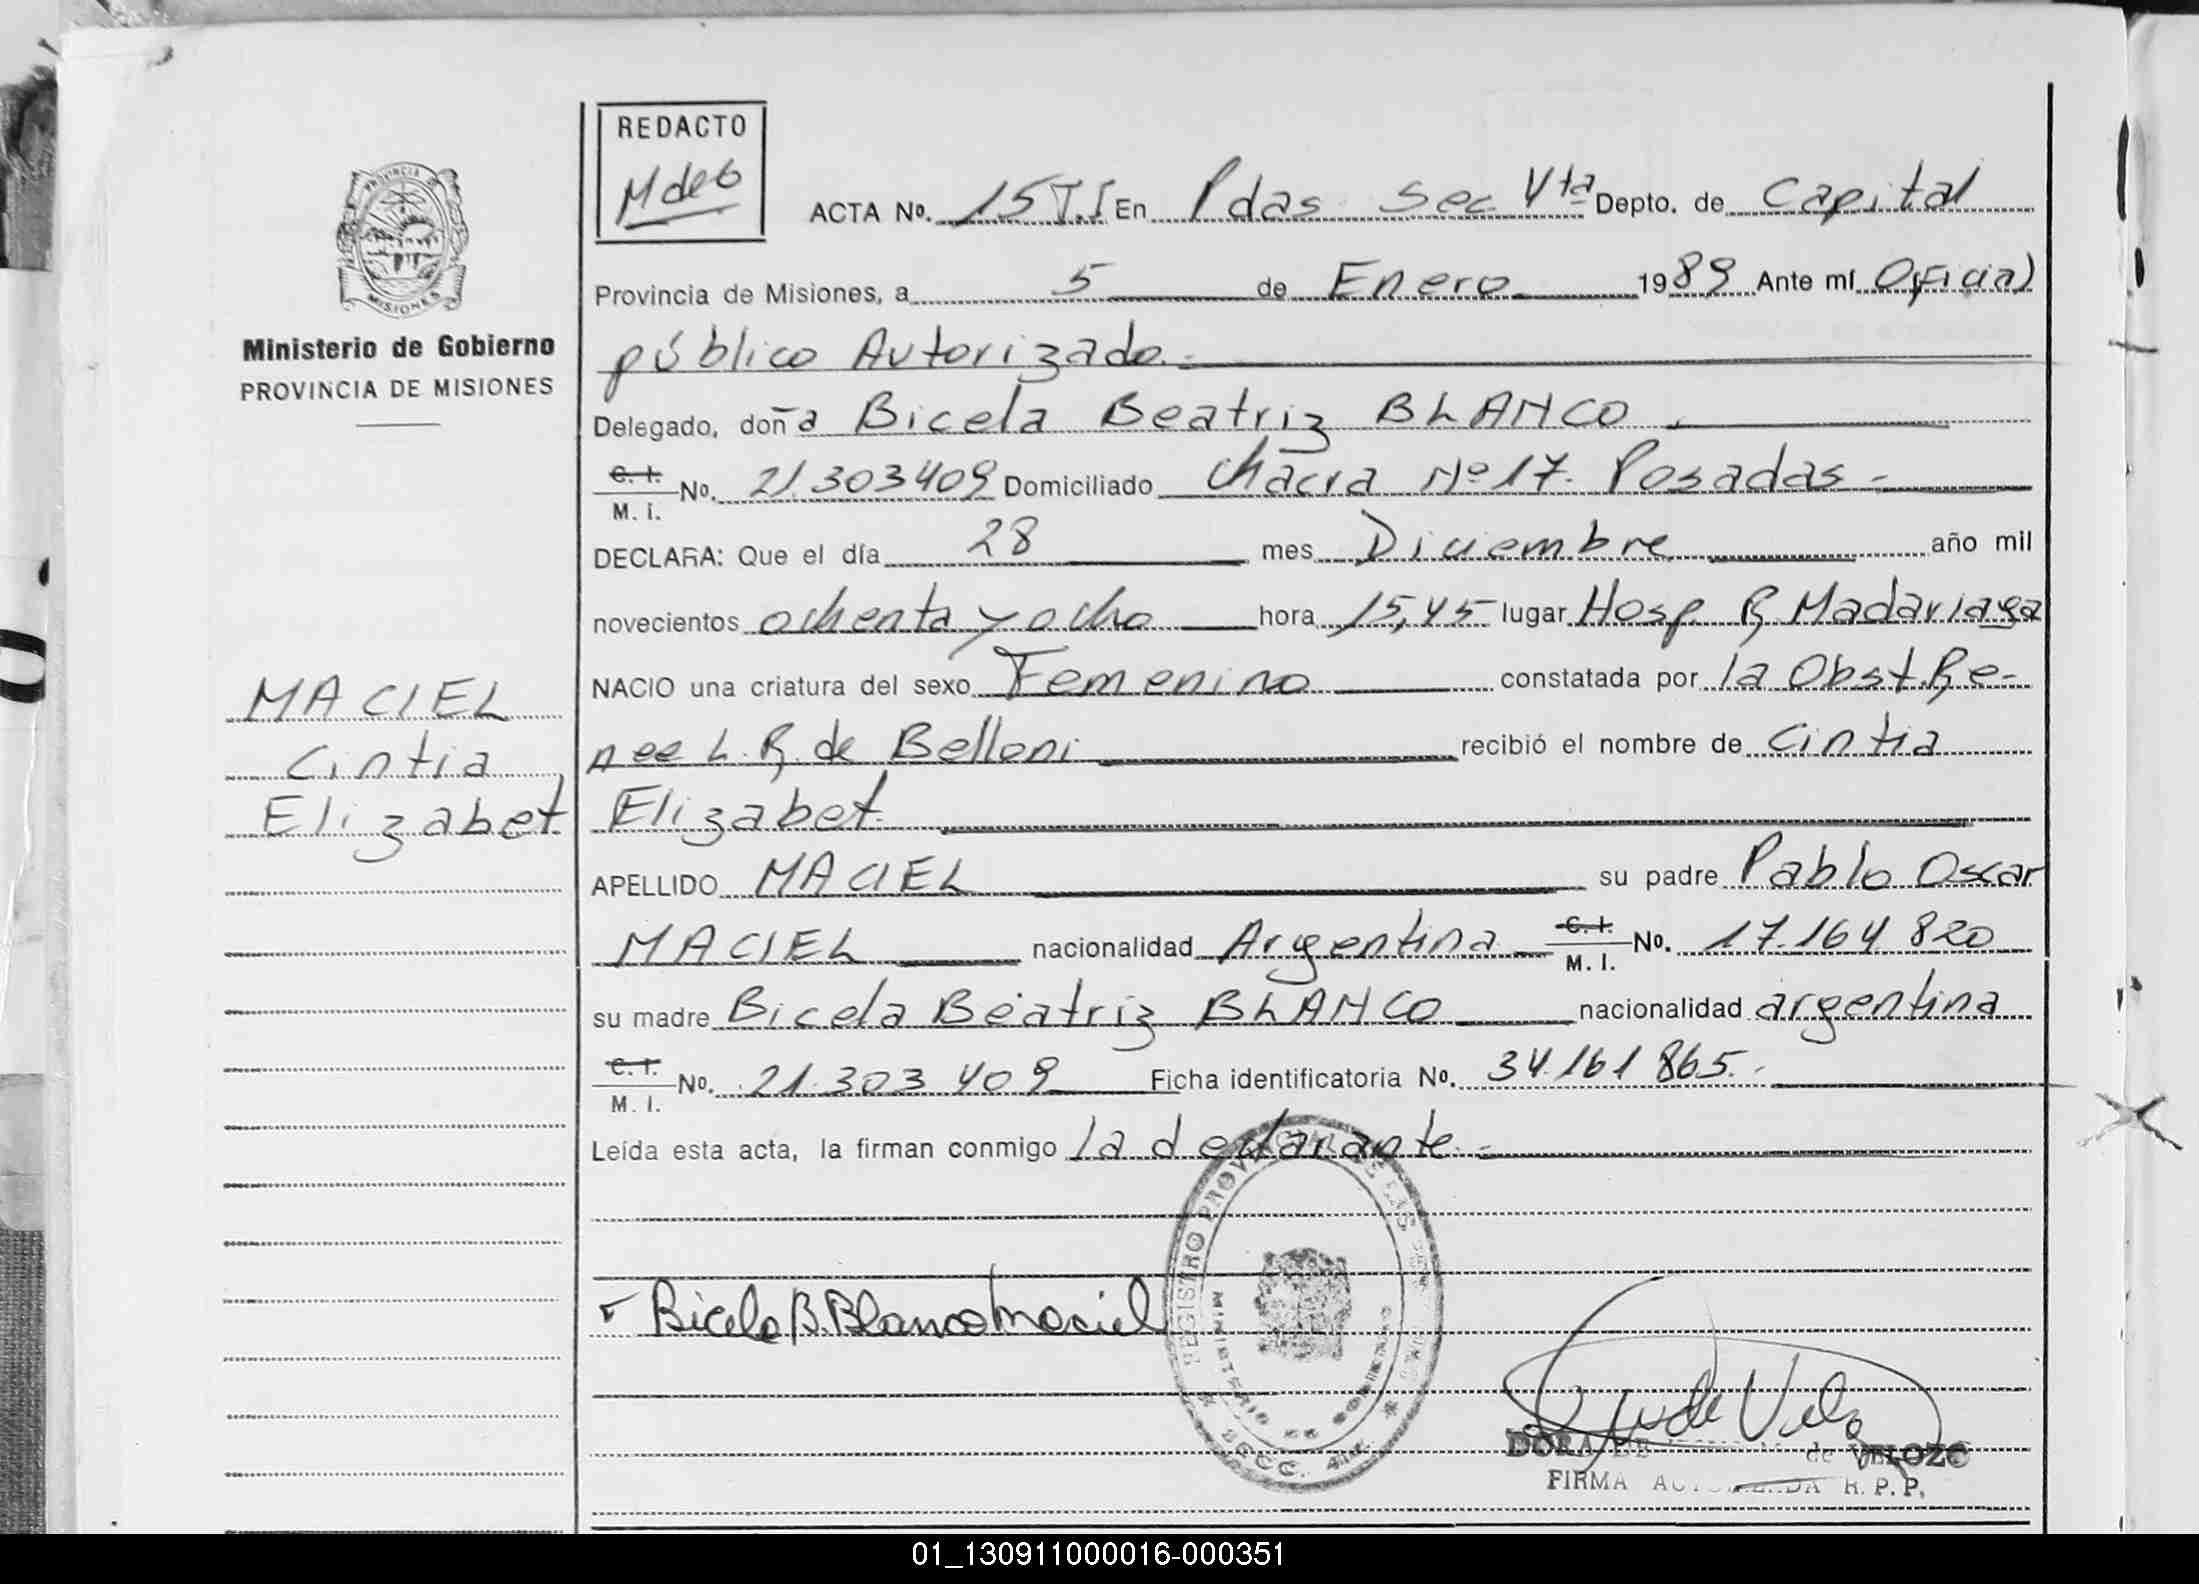 REDACTO
M de G
ACTA No. 15 T.I En Pdas Sec Vta Depto. de Capital
PROVINCIA DE MISIONES
Provincia de Misiones, a 5 de Enero 1989 Ante mí Oficial
público Autorizado.-
Ministerio de Gobierno
PROVINCIA DE MISIONES
Delegado, doña Bicela Beatriz BLANCO.
C. I. M. I. No. 21.303409 Domiciliado Chacra Nº 17. Posadas.-
DECLARA: Que el día 28 mes Diciembre año mil
novecientos ochenta y ocho hora 15,45 lugar Hosp. R. Madariaga
NACIO una criatura del sexo Femenino constatada por la Obst. Re-
nee L. R. de Belloni recibió el nombre de Cintia
Elizabet.
MACIEL
Cintia
Elizabet
APELLIDO MACIEL su padre Pablo Oscar
MACIEL nacionalidad Argentina C. I. M. I. No. 17.164 820
su madre Bicela Beatriz BLANCO nacionalidad argentina
C. I. M. I. No. 21.303 409 Ficha identificatoria No. 34.161 865.-
Leída esta acta, la firman conmigo la declarante.-
Bicela B. Blanco Maciel
REGISTRO PROV DE LAS
MINISTERIO DE GOBIERNO
SECC. 4ta.
DORA de VELOZO
FIRMA R. P. P.
01_130911000016-000351